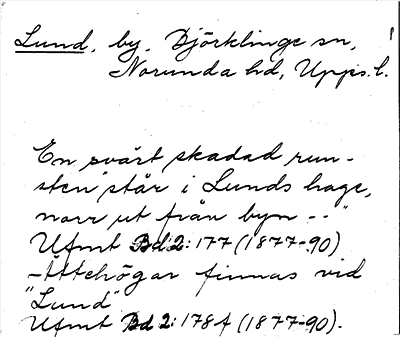 Lund, by, Björklinge sn,
Norunda hd, Upps. l.
En svårt skadad run-
sten "står i Lunds hage,
norr ut från byn --"
Ufmt Bd 2: 177 (1877-90)
-Ättehögar finnas vid
"Lund"
Ufmt Bd 2: 178 f (1877-90).